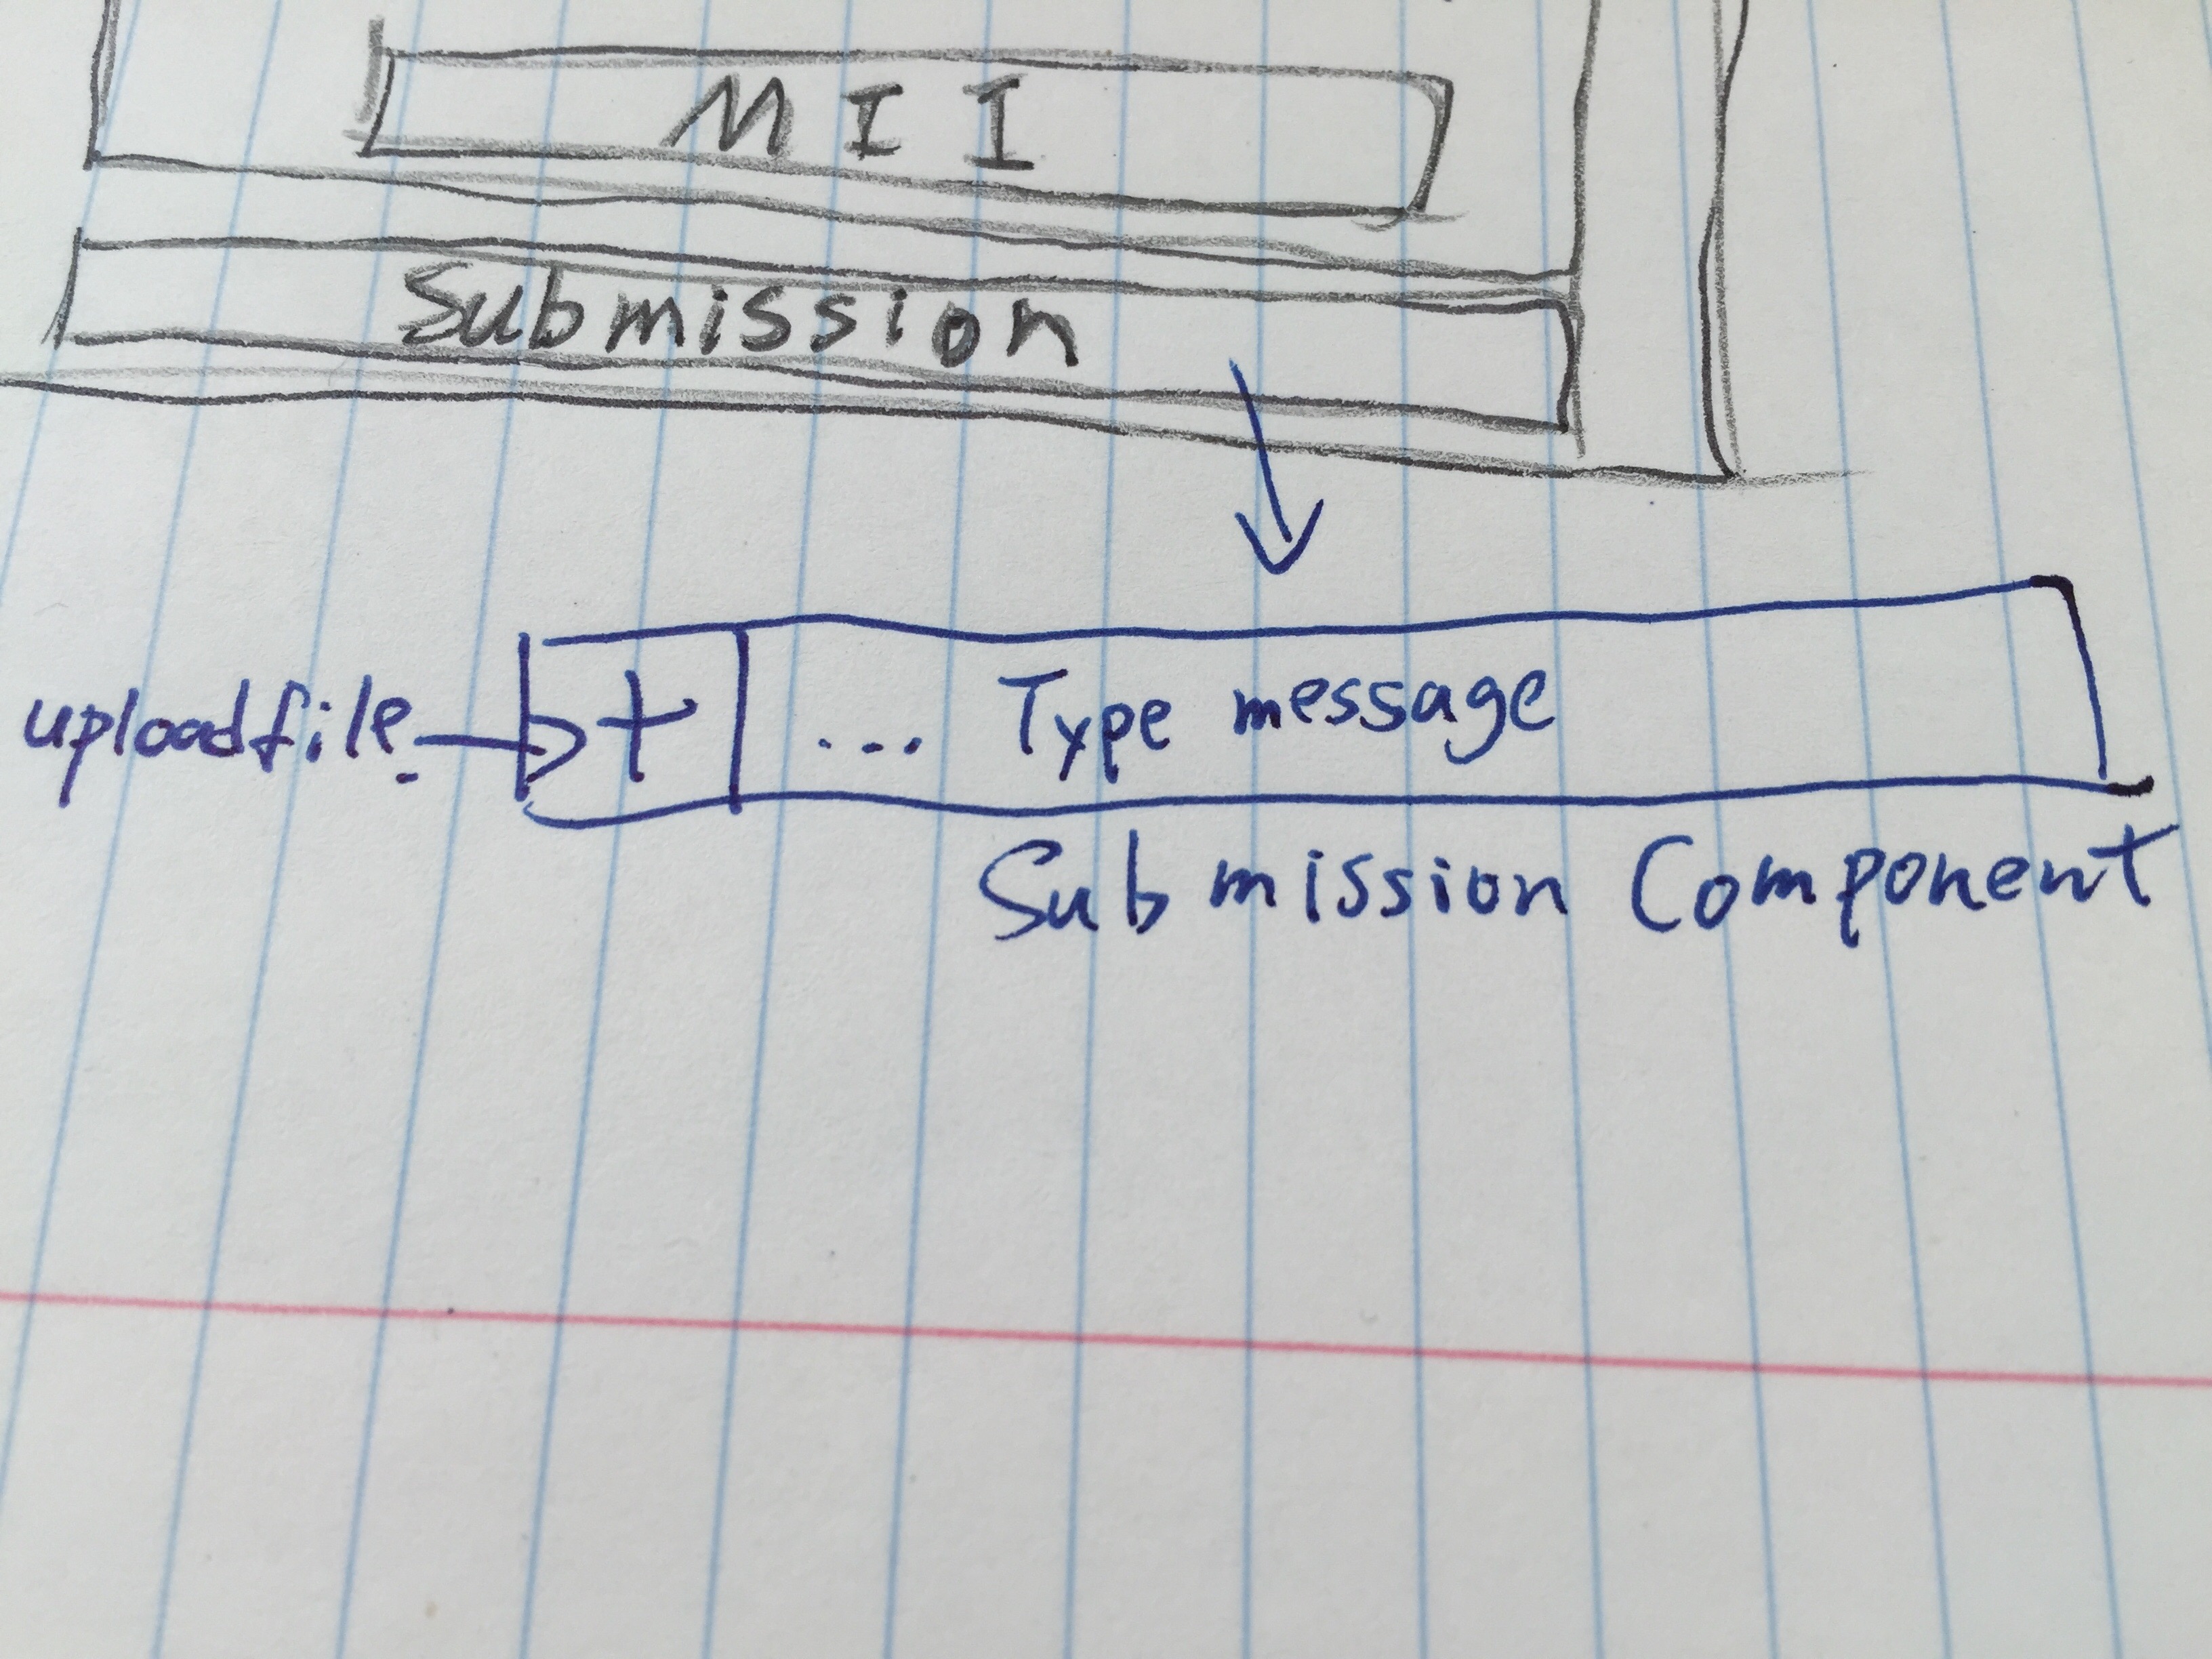 MII
Submission
uploadfile + ... Type message
Submission Component